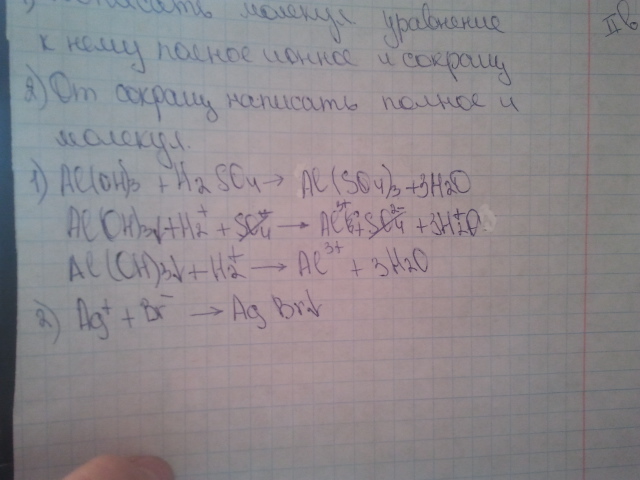 написать молекул уравнение
IIв
к нему полное ионное и сокращ
2) От сокращ написать полное и
молекул.
1) Al(OH)3 + H2SO4 → Al(SO4)3 + 3H2O
Al(OH)3↓ + H2+ + SO4 → Al3+ + SO4 2- + 3H2O
Al(OH)3↓ + H2+ → Al3+ + 3H2O
2) Ag+ + Br- → AgBr↓